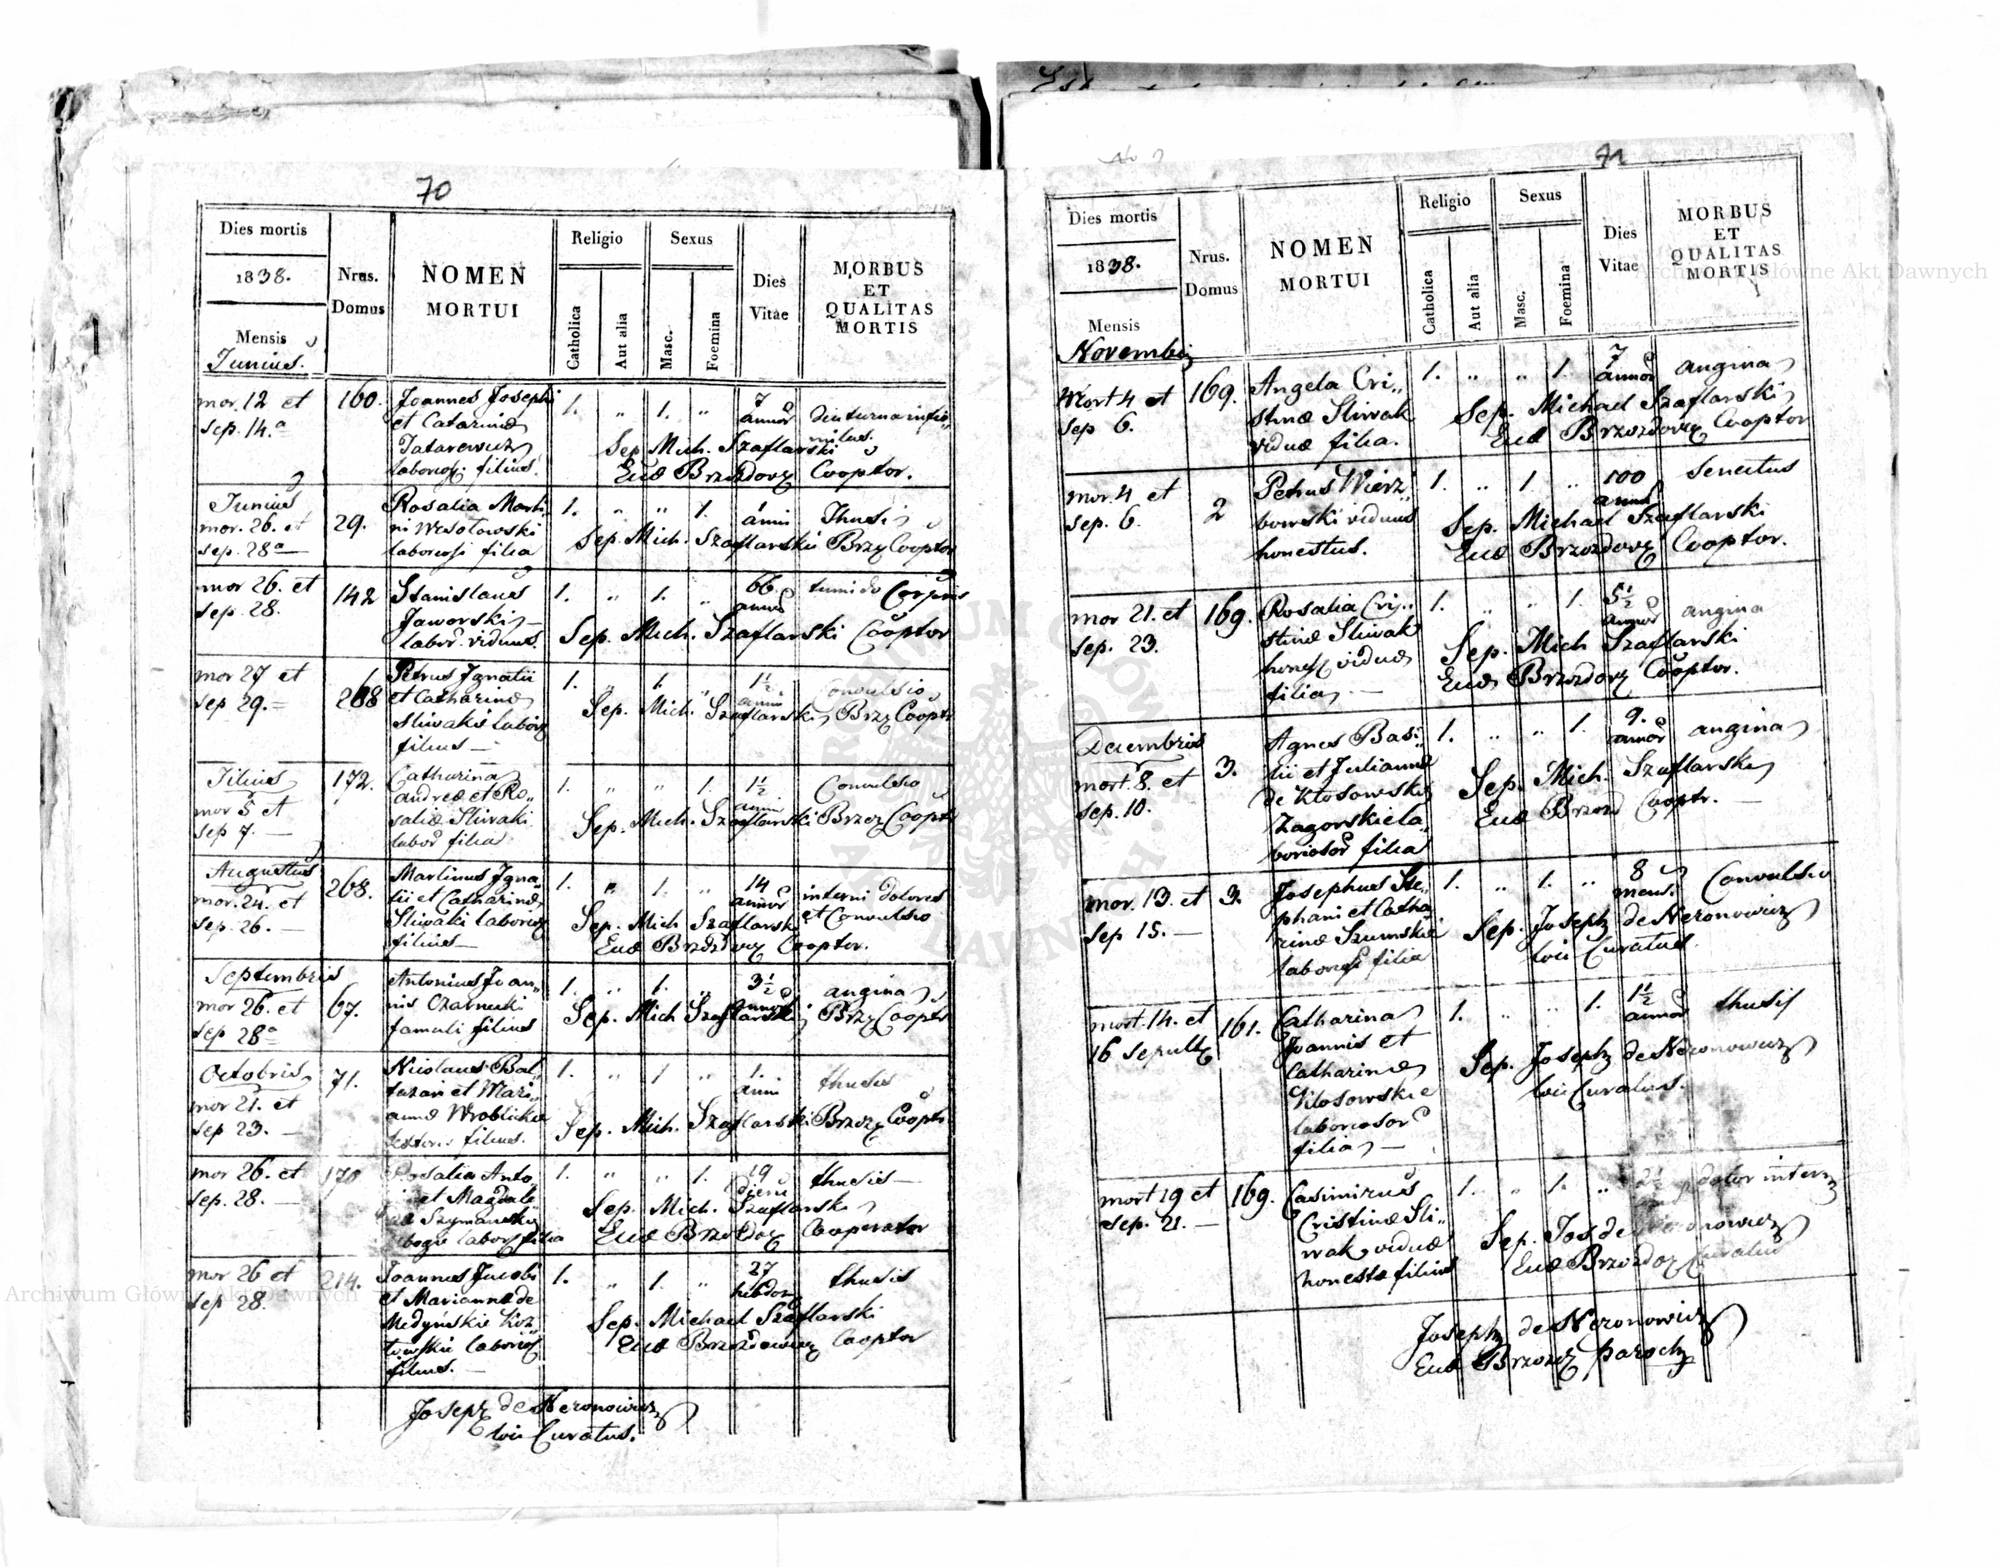 70
Dies mortis
1838.
Mensis
Junius
Nrus.
Domus
NOMEN
MORTUI
Religio
Catholica
Aut alia
Sexus
Masc.
Foemina
Dies
Vitae
MORBUS
ET
QUALITAS
MORTIS
mor. 12 et
sep. 14.a
160.
Joannes Josephi
et Catarinæ
Tatarewicz
laborios. filius.
1. " 1. "
7
annor
diuturna infir-
mitas.
Sep. Mich. Szaflarski
Eccl Brzozdovz Cooptor.
Junius
mor. 26. et
sep. 28a
29.
Rosalia Marti-
ni Wesołowski
laboriosi filia
1. " " 1.
anni
Thusis
Sep. Mich. Szaflarski Brzz Cooptor
mor 26. et
sep. 28.
142
Stanislaus
Jaworski
labor. viduus.
1. " 1. "
66
annor
tumido Corporis
Sep. Mich. Szaflarski Cooptor
mor 27 et
sep 29.
268
Petrus Ignatii
et Catharinæ
Sliwakis laborz
filius
1. " 1. "
1½
anni
Convulsio
Sep. Mich. Szaflarski Brzz Cooptr
Julius
mor 5 et
sep 7.
172.
Catharina
Andreæ et Ro-
saliæ Sliwaki
labor filia
1. " " 1.
1½
anni
Convulsio
Sep. Mich. Szaflarski Brzoz Cooptr
Augustus
mor. 24. et
sep. 26.
268.
Martinus Igna-
tii et Catharinæ
Sliwaki laborioz
filius
1. " 1. "
14
annor
interni dolores
et Convulsio
Sep. Mich Szaflarski
Eccl Brzozdovz Cooptor.
Septembris
mor 26. et
sep 28a
67.
Antonius Joan-
nis Czarnecki
famuli filius
1. " 1. "
3½
annor
angina
Sep. Mich Szaflarski Brzz Cooptr
Octobris
mor 21. et
sep 23.
71.
Nicolaus Bal-
tazari et Mari-
annæ Wroblickie
textoris filius.
1. " 1 "
1.
anni
thusis
Sep. Mich. Szaflarski Brzozz Cooptr
mor 26. et
sep. 28.
170
Rosalia Anto-
et Magdale
Szymanski
labor filia
1. " " 1.
19
dieru
thusis
Sep. Mich. Szaflarski
Eccl Brzozdoz Cooperator
mor 26 et
sep 28.
214.
Joannes Jacobi
et Mariannæ de
Medynskie Koz-
łowskie laborios
filius.
1. " 1. "
27
hebdom
thusis
Sep. Michael Szaflarski
Eccl Brzozdowiez Cooptor
Joseph de Neronowicz
loci Curatus.
71
Dies mortis
1838.
Mensis
Novembris
Nrus.
Domus
NOMEN
MORTUI
Religio
Catholica
Aut alia
Sexus
Masc.
Foemina
Dies
Vitae
MORBUS
ET
QUALITAS
MORTIS
Mort 4 et
sep 6.
169.
Angela Cri-
stinæ Sliwak
viduæ filia.
1. " " 1.
7
annor
angina
Sep. Michael Szaflarski
Eccl Brzozdovz Cooptor
mor. 4 et
sep. 6.
2
Petrus Wierz-
bowski viduus
honestus.
1. " 1 "
100
annor
Senectus
Sep. Michael Szaflarski
Eccl Brzozdovz Cooptor.
mor 21. et
sep. 23.
169.
Rosalia Cri-
stinæ Sliwak
honest viduæ
filia
1. " " 1.
5½
annor
angina
Sep. Mich Szaflarski
Eccl Brzozdovz Cooptor.
Decembris
mort. 8. et
sep. 10.
3.
Agnes Basi-
lii et Juliannæ
de Kłosowskie
Zagorskie la-
boriosor filia
1. " " 1.
9.
annor
angina
Sep. Mich. Szaflarski
Eccl Brzozd Cooptr.
mor. 13. et
sep 15.
3.
Josephus Ste-
phani et Catha-
rinæ Szumskie
laborios filia
1. " 1. "
8
mens.
Convulsio
Sep. Joseph de Neronowicz
loci Curatus.
mort. 14. et
16 sepultz
161.
Catharina
Joannis et
Catharinæ
Kłosowskie
laboriosor
filia
1. " " 1.
1½
annor
thusis
Sep. Joseph de Neronowicz
loci Curatus.
mort 19 et
sep. 21.
169.
Casimirus
Cristinæ Sli-
wak viduæ
honestæ filius
1. " 1. "
2½
dolor intern
Sep. Jos de Neronowicz
Eccl Brzozdoz Curatus
Joseph de Neronowicz
Eccl Brzozdz parochz
Archiwum Główne Akt Dawnych
Archiwum Główne Akt Dawnych
ARCHIWUM GŁÓWNE AKT DAWNYCH